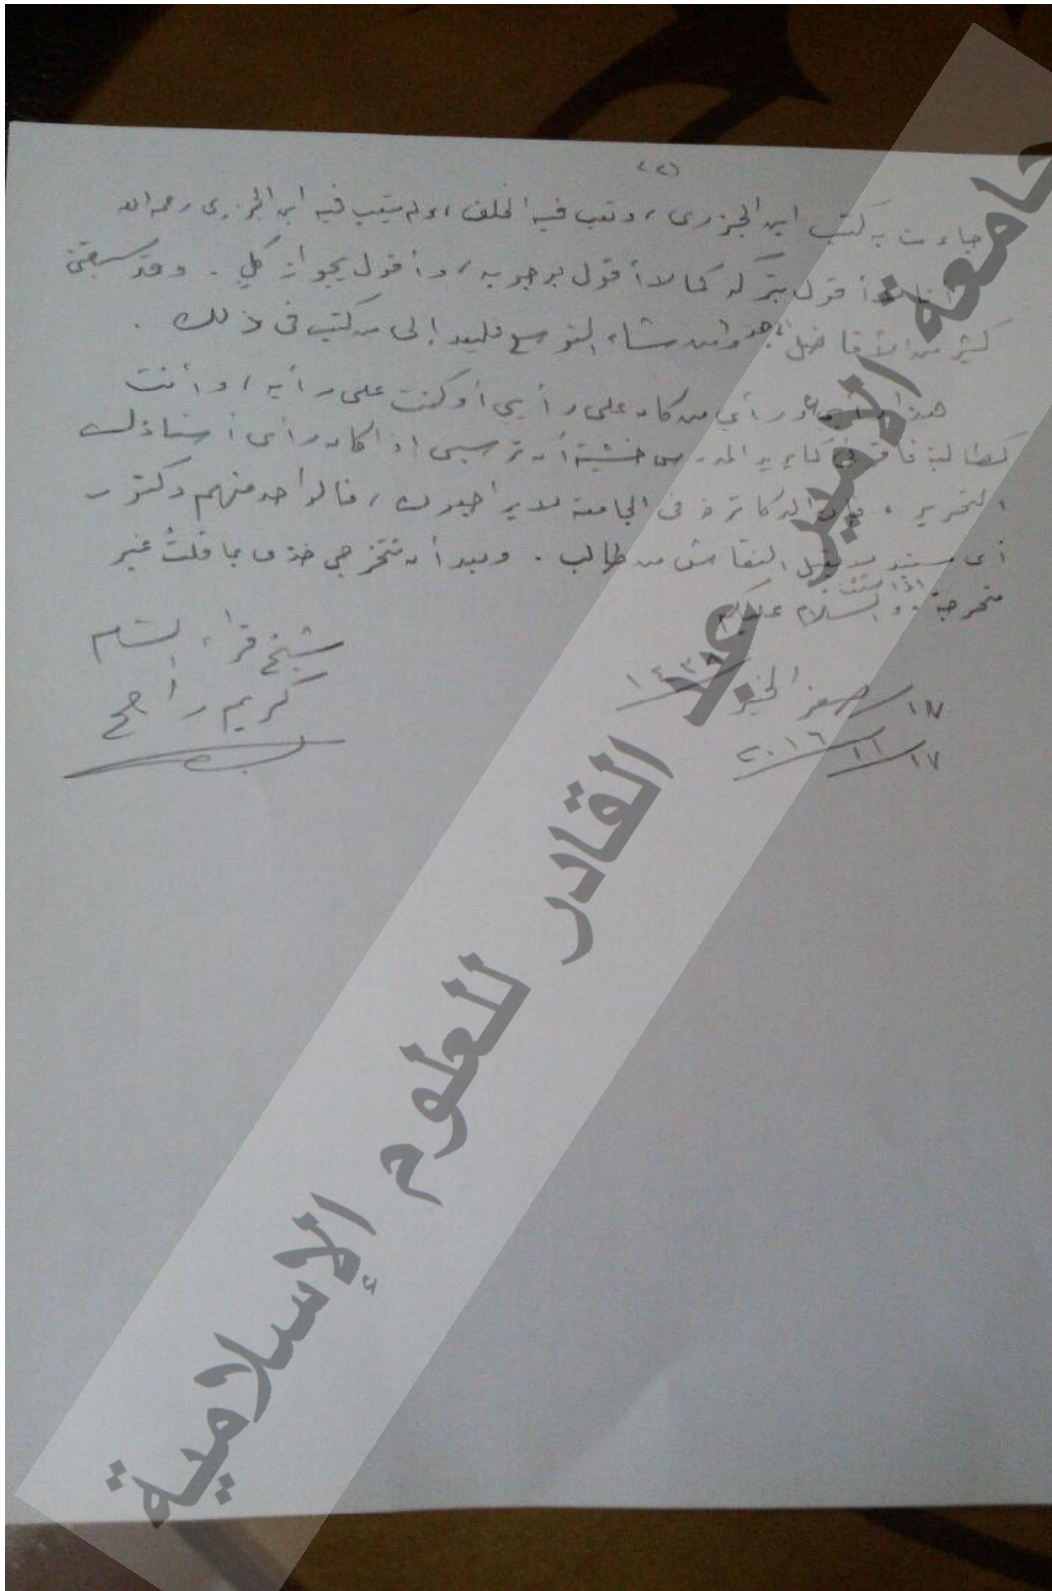 جاءت به كتب ابن الجزرى، وتعب فيه الخلف، ولم يتعب فيه ابن الجزرى رحمه الله
أقول بتركه كما لا أقول بوجوبه، وأقول بجواز كلٍ. وقد سبقنى
كثير من الأفاضل، ومن شاء التوسع فليعد إلى ما كتب فى ذلك.
هذا رأيي ورأي من كان على رأيي أو كنت على رأيه، وأنت
كطالبة المدرس خشية أن ترسبى إذا كان رأى أستاذك
التحرير، فإن الدكاترة فى الجامعة لا يراجعون، فالواحد منهم دكتور
أى مستبد لا يقبل النقاش من طالب. وبعد أن تتخرجى خذى بما قلتُ غير
متحرجة إذا شئت. والسلام عليكم
شيخ قراء الشام
كريم راجح
١٧/ صفر الخير ١٤٣٨
١٧/١١/٢٠١٦
جامعة الأمير عبد القادر للعلوم الإسلامية